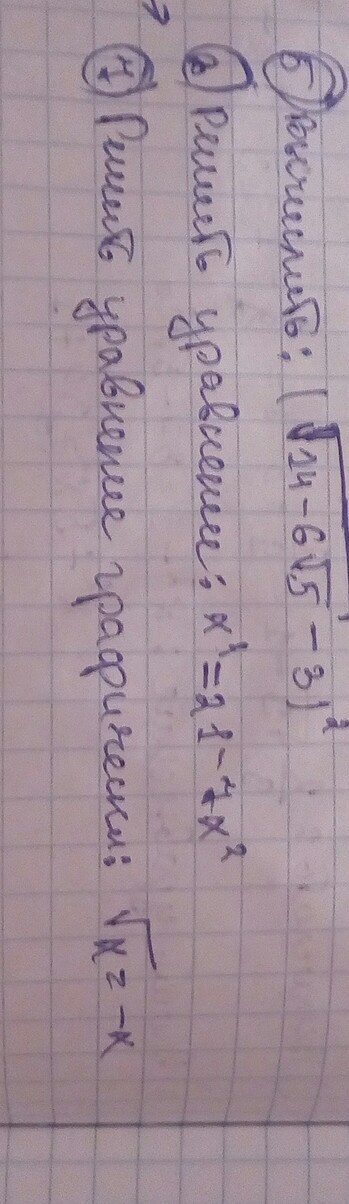 5 Вычислить: (√14-6√5 - 3)²
2) Решить уравнение: x⁴ = 21 - 4x²
4 Решить уравнение графически: √x = -x